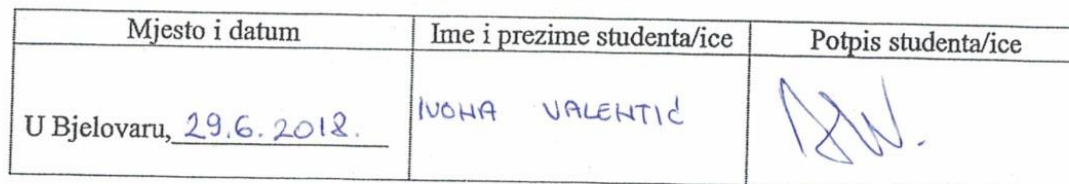 Mjesto i datum
Ime i prezime studenta/ice
Potpis studenta/ice
U Bjelovaru, 29.6.2018.
IVONA VALENTIĆ